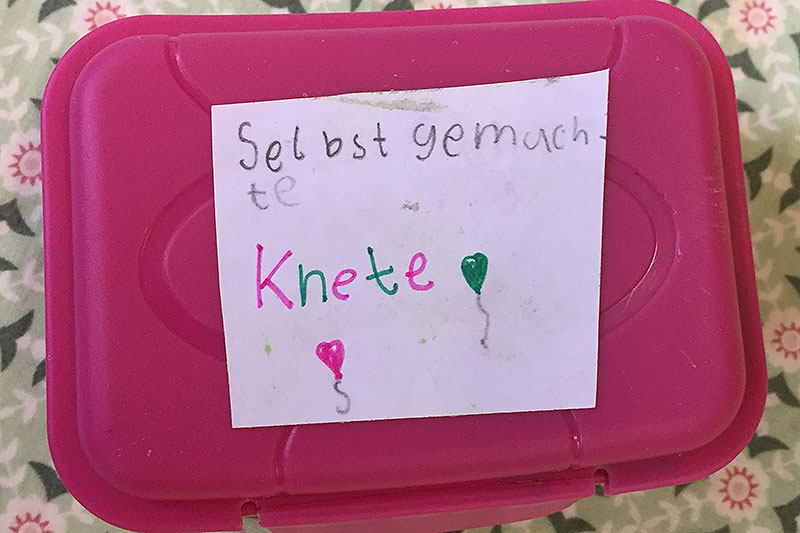 Selbst gemach-
te
Knete